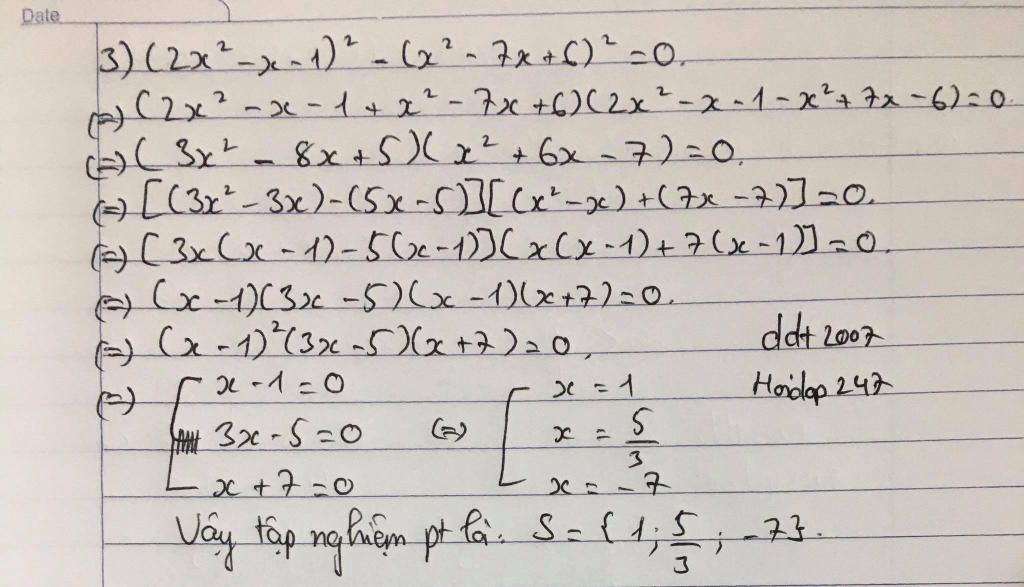 Date
3) (2x² - x - 1)² - (x² - 7x + 6)² = 0.
(=) (2x² - x - 1 + x² - 7x + 6)(2x² - x - 1 - x² + 7x - 6) = 0.
(=) (3x² - 8x + 5)(x² + 6x - 7) = 0.
(=) [(3x² - 3x) - (5x - 5)][(x² - x) + (7x - 7)] = 0.
(=) [3x(x - 1) - 5(x - 1)][x(x - 1) + 7(x - 1)] = 0.
(=) (x - 1)(3x - 5)(x - 1)(x + 7) = 0.
(=) (x - 1)²(3x - 5)(x + 7) = 0.
ddt 2007
(=) [ x - 1 = 0
3x - 5 = 0
x + 7 = 0
(=) [ x = 1
x = 5/3
x = -7
Hoidap 247
Vậy tập nghiệm pt là: S = {1; 5/3; -7}.